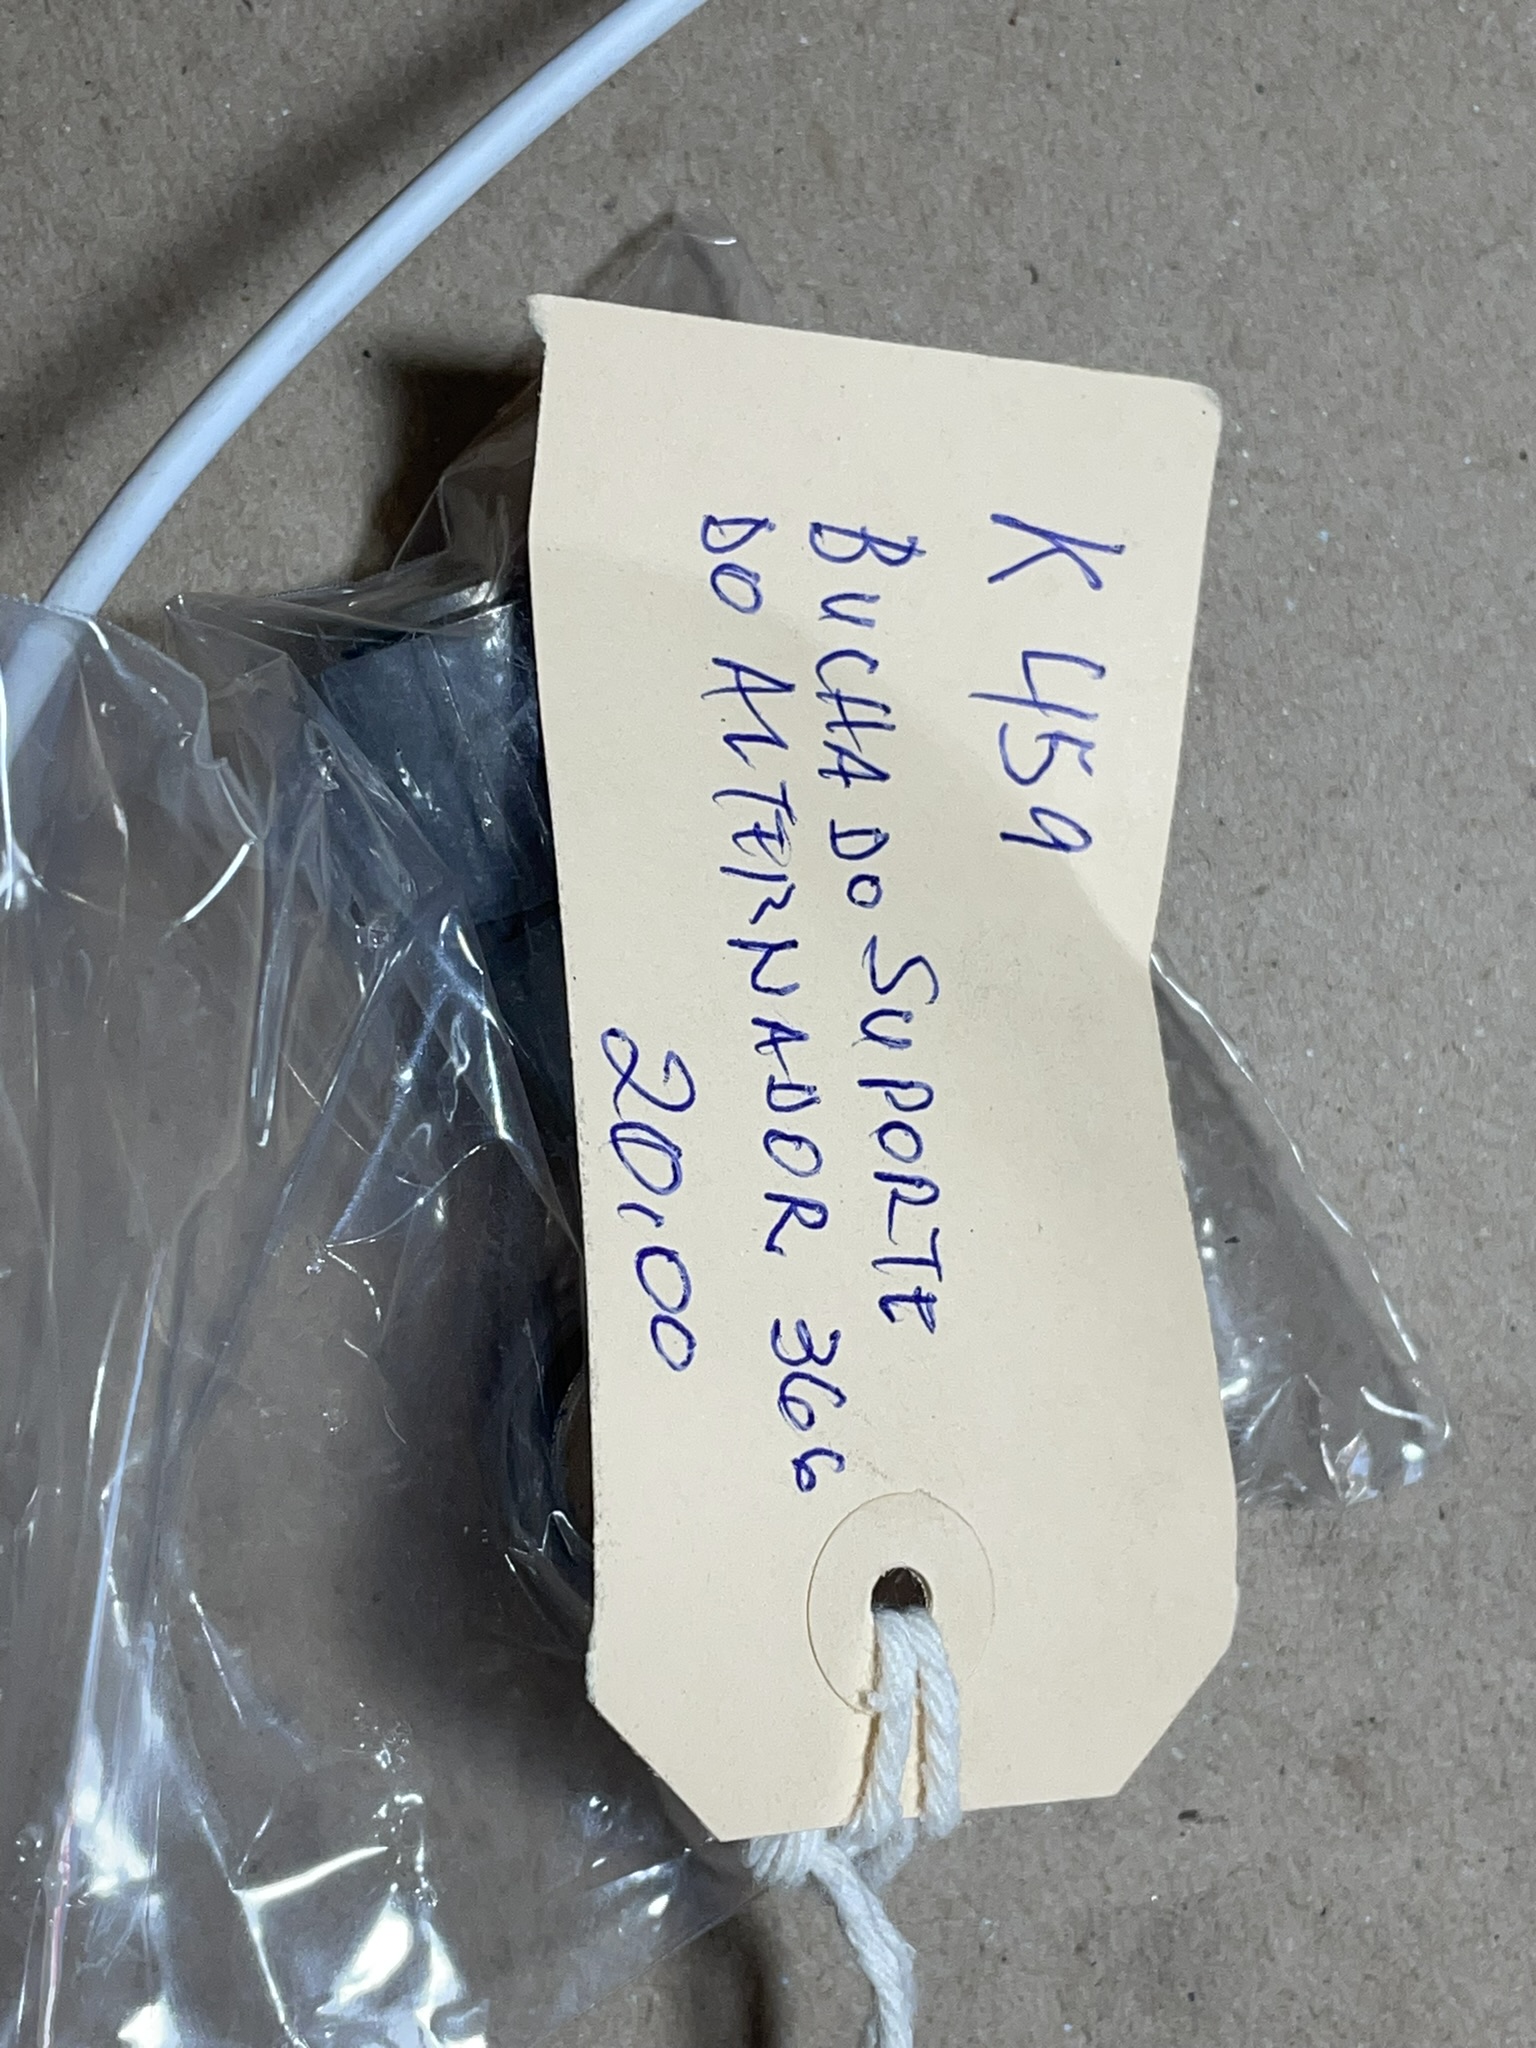 K 459
BUCHA DO SUPORTE
DO ALTERNADOR 366
20,00